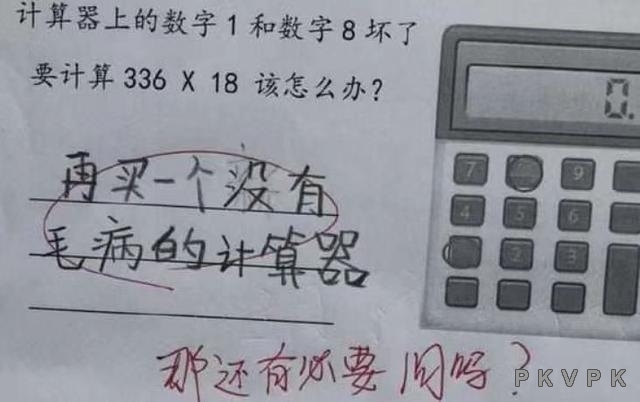 计算器上的数字1和数字8坏了
要计算336 X 18 该怎么办?
再买一个没有
毛病的计算器
那还有必要问吗?
0.
7
9
4
5
6
2
3
PKVPK